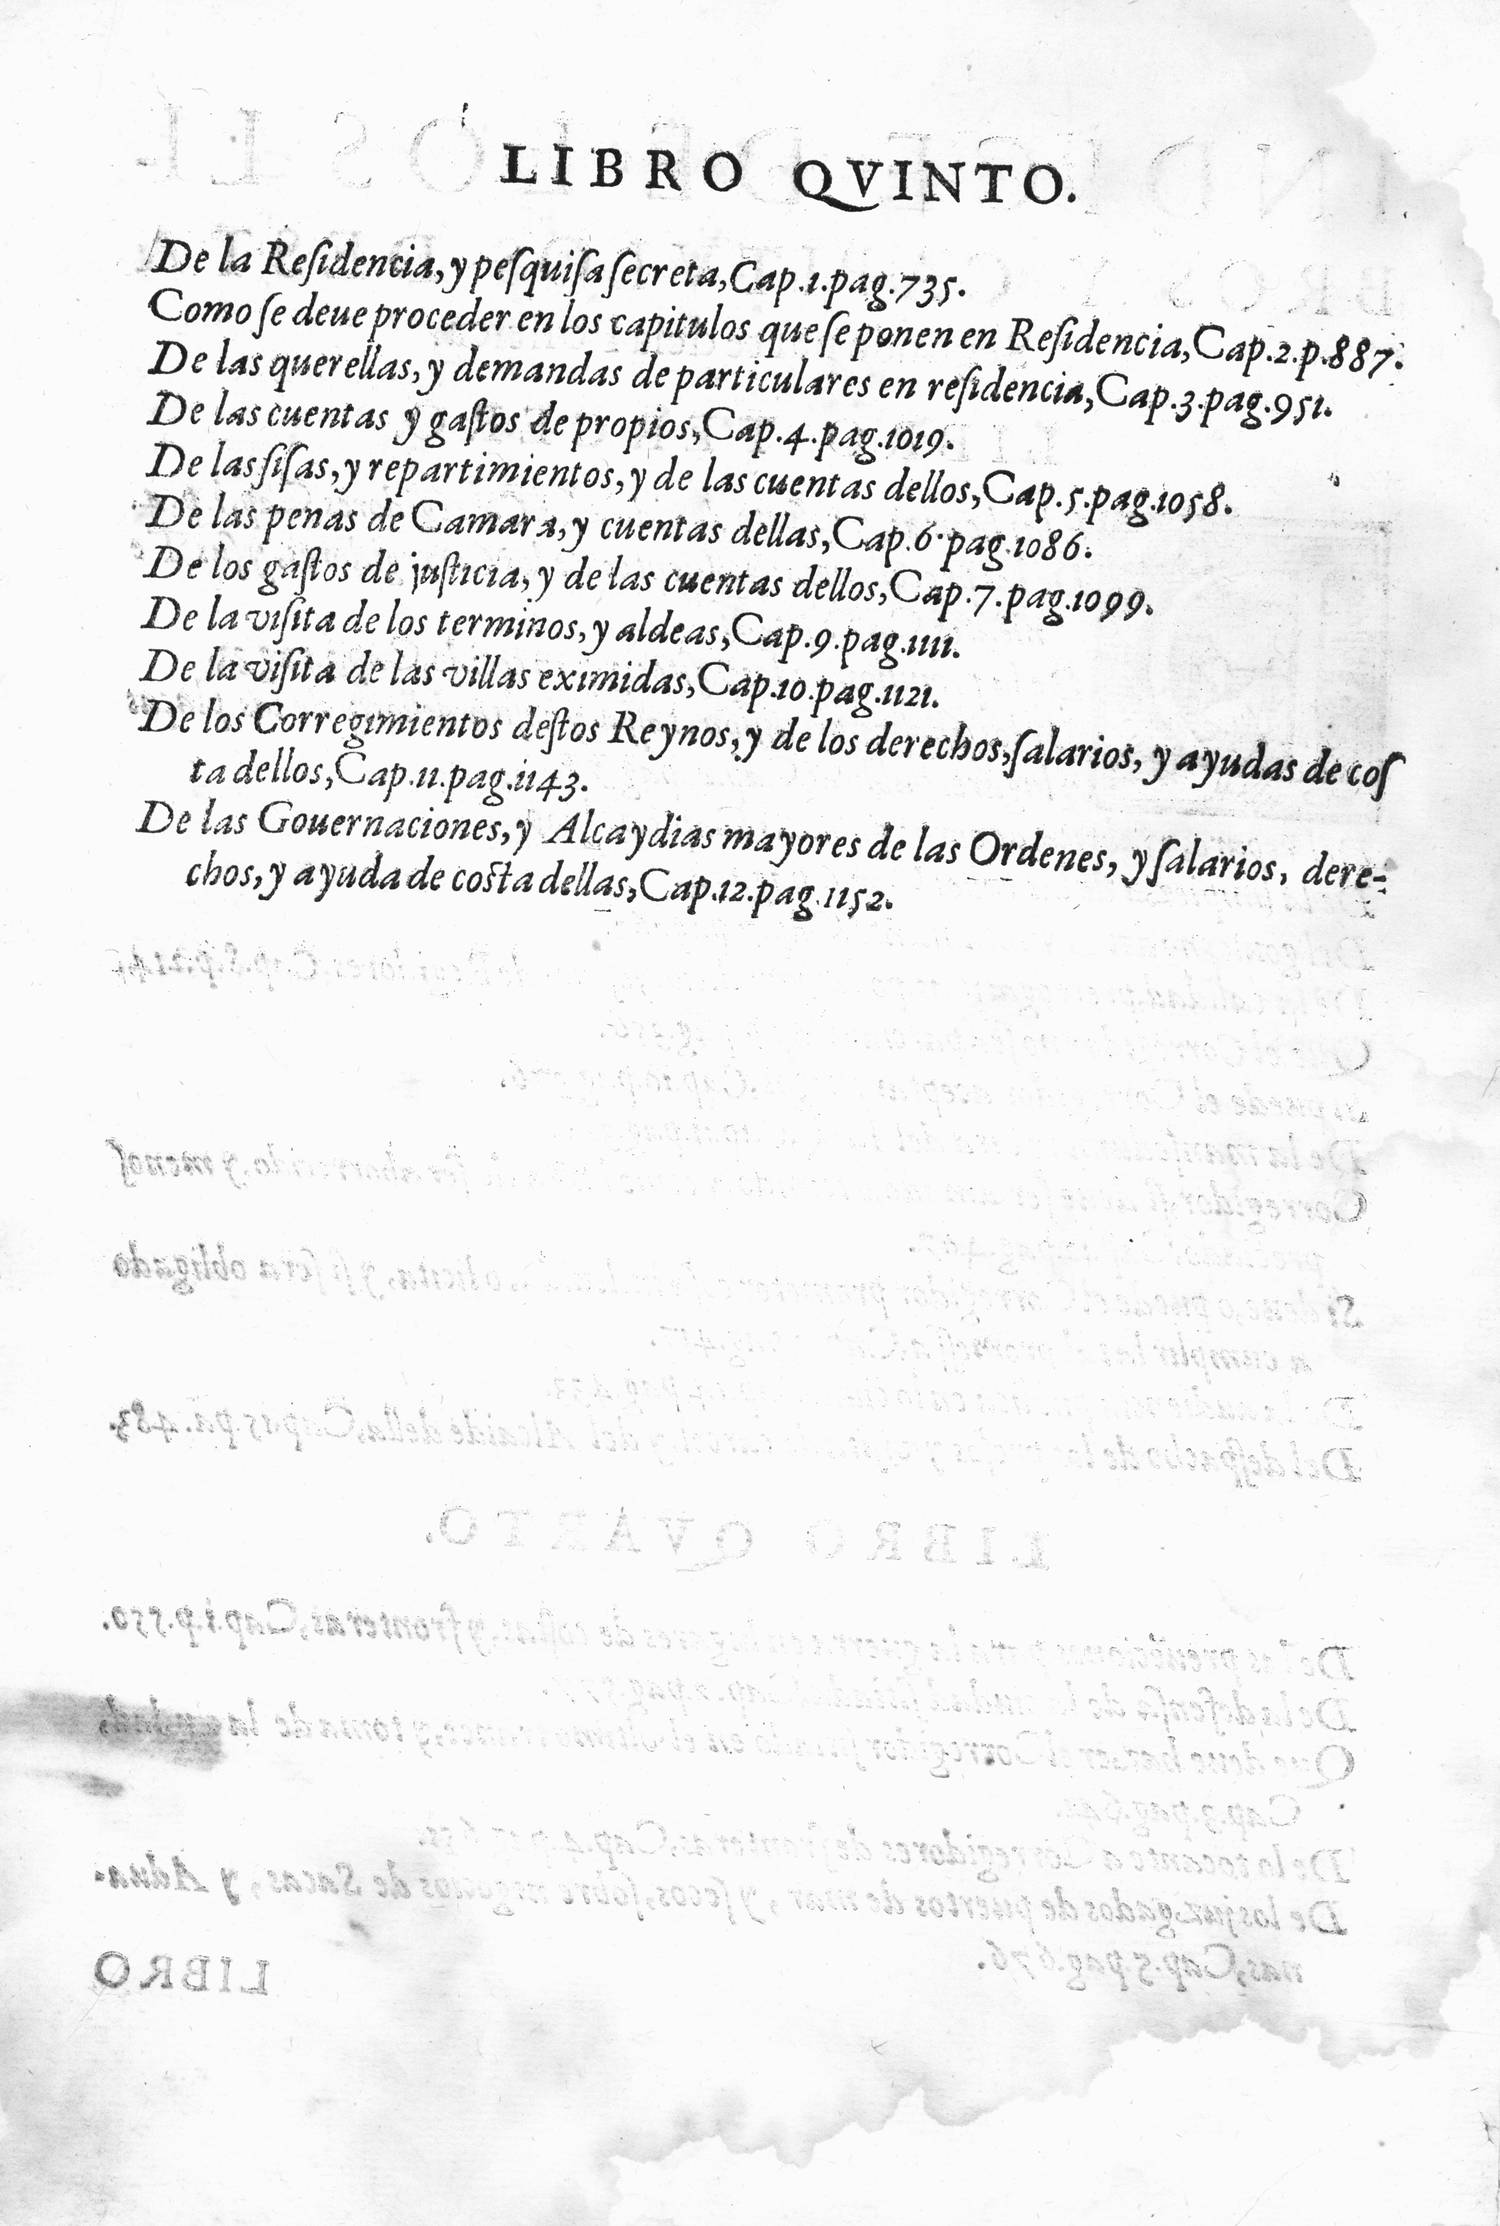 LIBRO QVINTO.
De la Reſidencia, y peſquiſa ſecreta, Cap.1.pag.735.
Como ſe deue proceder en los capitulos que ſe ponen en Reſidencia, Cap.2.p.887.
De las querellas, y demandas de particulares en reſidencia, Cap.3.pag.951.
De las cuentas y gaſtos de propios, Cap.4.pag.1019.
De las ſiſas, y repartimientos, y de las cuentas dellos, Cap.5.pag.1058.
De las penas de Camara, y cuentas dellas, Cap.6.pag.1086.
De los gaſtos de juſticia, y de las cuentas dellos, Cap.7.pag.1099.
De la viſita de los terminos, y aldeas, Cap.9.pag.1111.
De la viſita de las villas eximidas, Cap.10.pag.1121.
De los Corregimientos deſtos Reynos, y de los derechos, ſalarios, y ayudas de coſ
ta dellos, Cap.11.pag.1143.
De las Gouernaciones, y Alcaydias mayores de las Ordenes, y ſalarios, dere-
chos, y ayuda de coſta dellas, Cap.12.pag.1152.